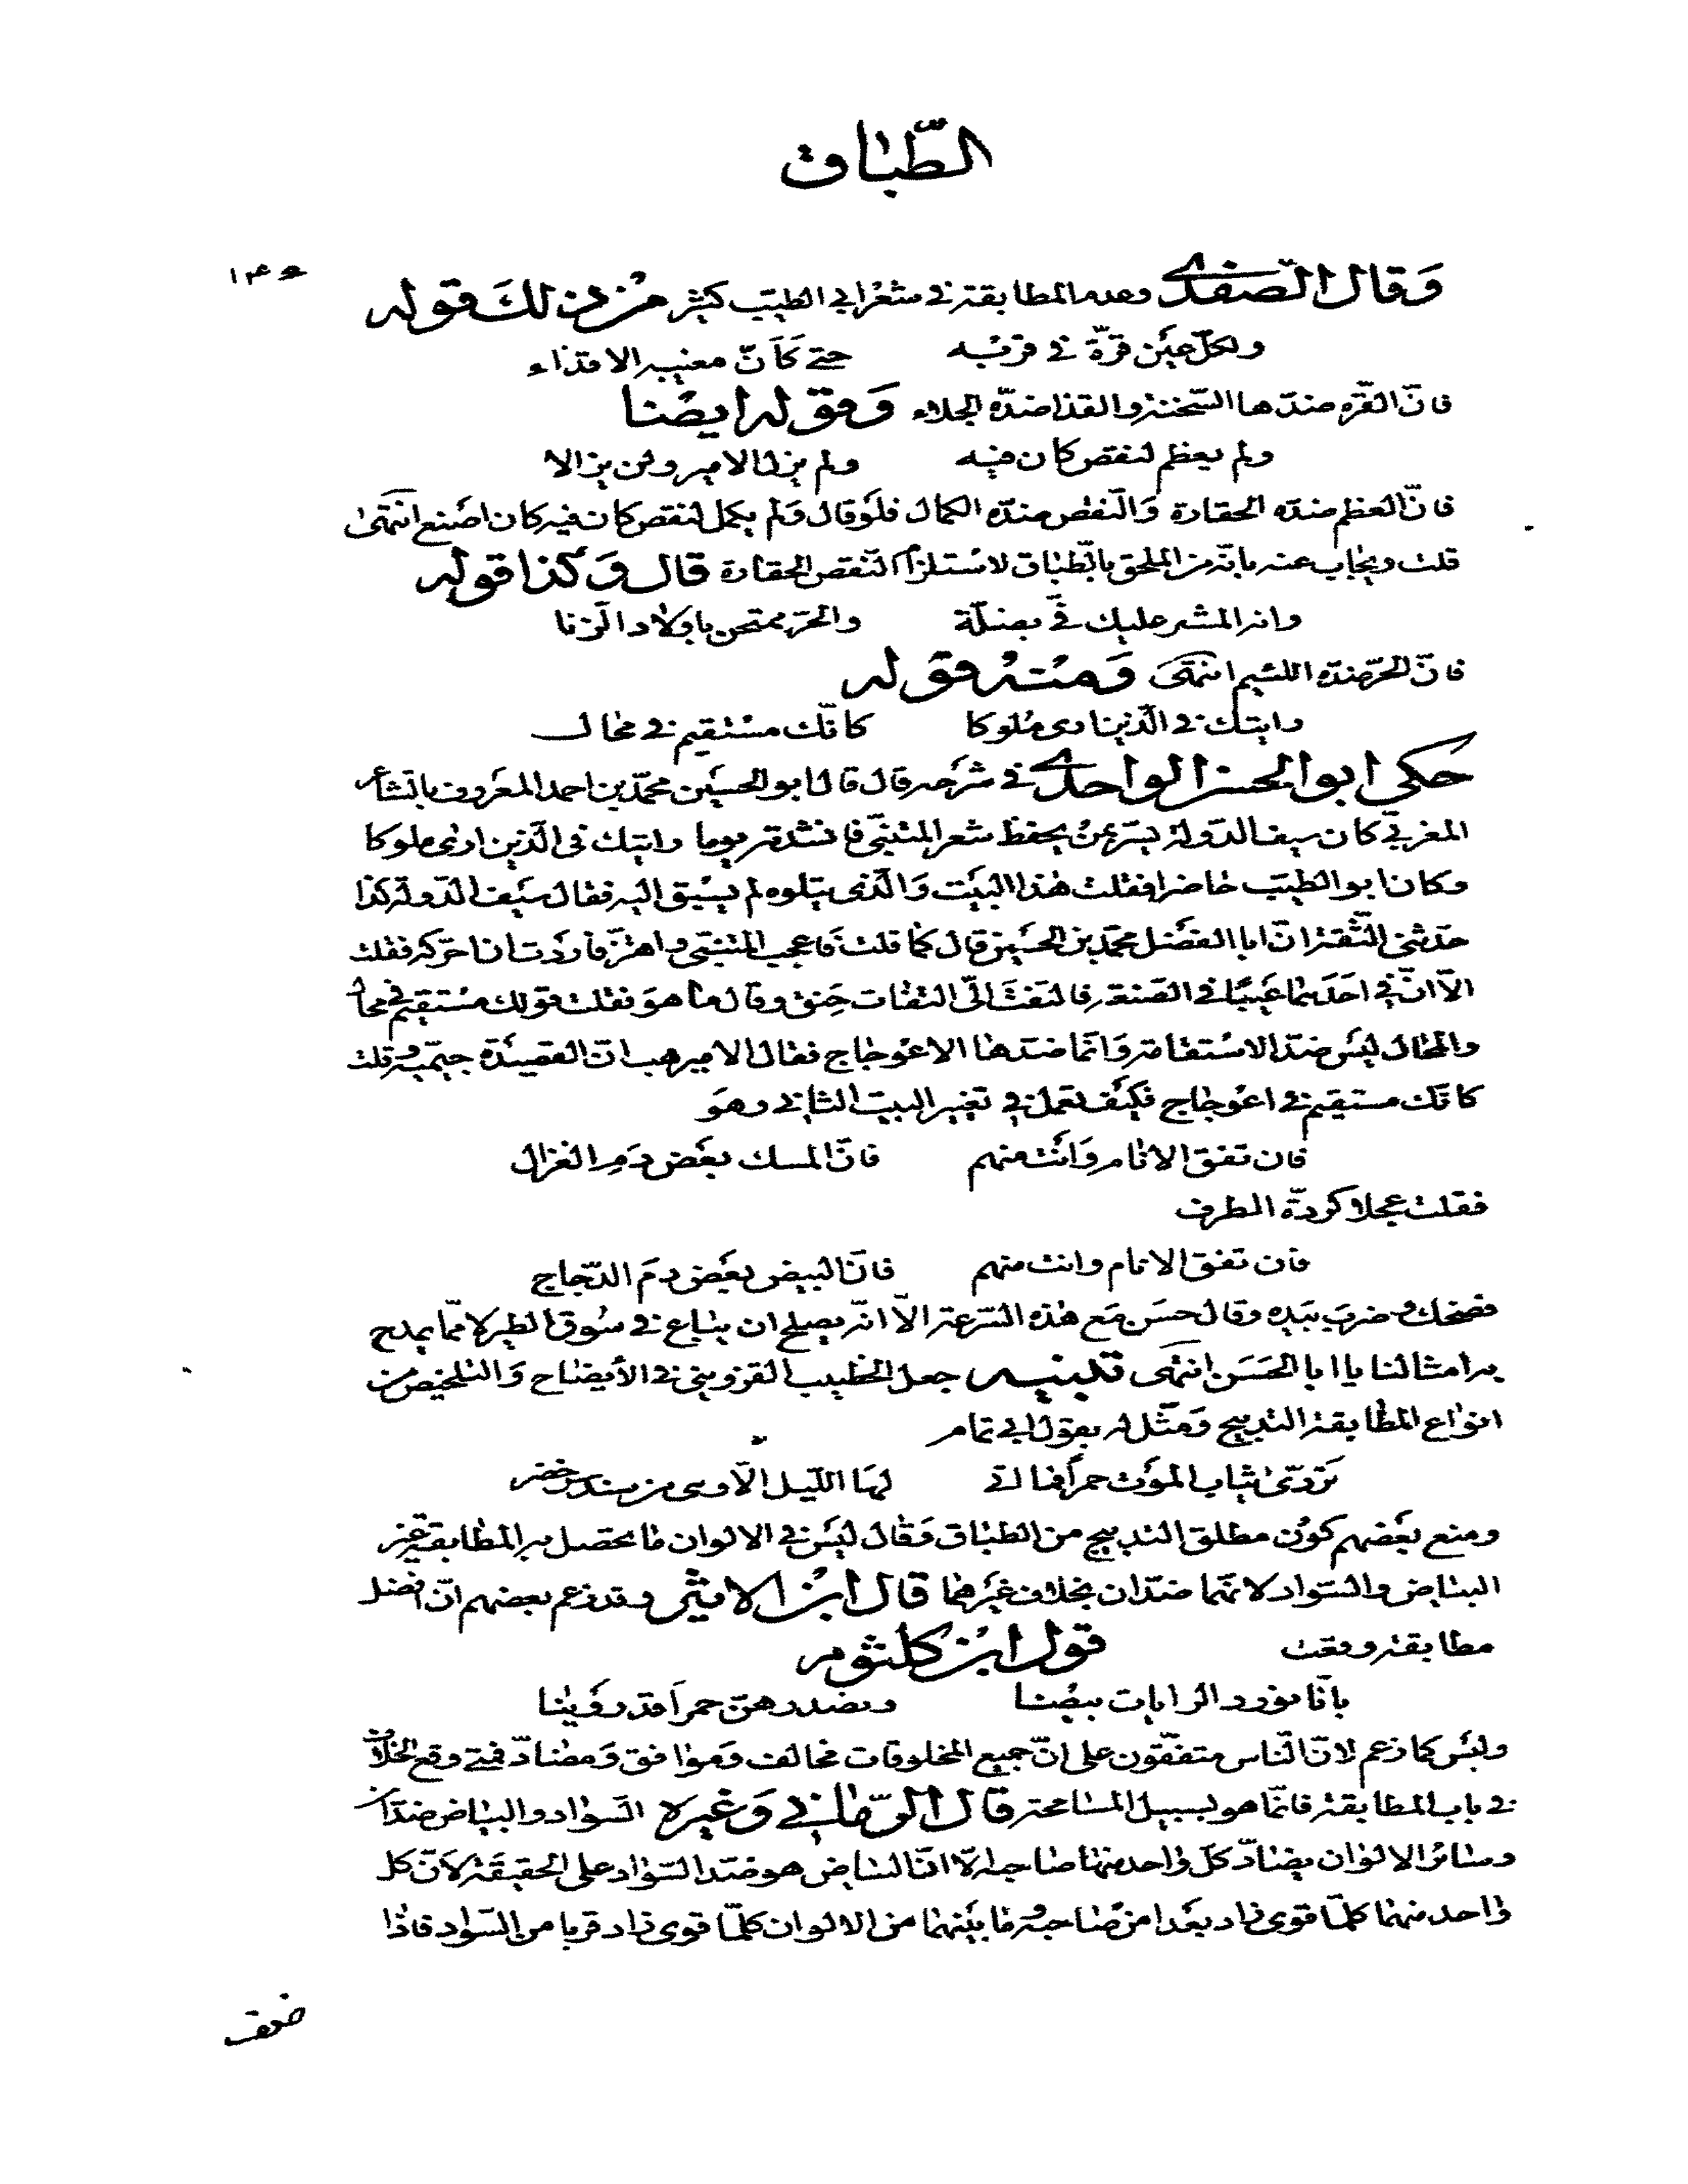 الطّباق
١٣٥
وَقال الصّفدى وعدم المطابقة فى شعر ابى الطيّب كثير من ذلك قوله
ولكلّ عين قرّة فى قربه حتى كَأَنّ مغيبه الاقذاء
فانّ القرّه ضدّها السّخنة والقذا ضدّه الجلاء وَقوله ايضا
ولم يعظم لنقص كان فيه ولم يزل الامير ولن يزالا
فانّ العظم ضدّه الحقارة وَالنّقص ضدّه الكمال فلَو قال وَلم يكمل لنقص كان فيه كان اصنع انتهىٰ
قلت ويجاب عنه بانّه من الملحق بالطّباق لاستلزام النّقص الحقارة قال وَكذا قوله
وانه المشير عليك فىّ بضلّة والحرّ ممتحن باولاد الزّنا
فانّ الحرّ ضدّه اللئيم انتهىَ وَمنه قوله
رايتك فى الّذين ارى مُلوكا كانّك مستقيم فى محال
حكى ابو الحسن الواحدى فى شرحه قال قال ابو الحسين محمّد بن احمد المعَروف بالشاعر
المغربىّ كان سيف الدّولة يسرّ بمن يحفظ شعر المتنبّى فانشدته يوما رايتك فى الّذين ارىٰ ملوكا
وكان ابو الطيّب حاضرا فقلت هٰذا البيت وَالّذى يتلوه لم يسبق اليه فقال سَيف الدّولة كذا
حدّثنى الثّقة انّ ابا الفضل محمّد بن الحسَين قال كما قلت فاعجب المتنبّى واهتزّ فاردت ان احرّكه فقلت
الّا انّ فى احَدهما عَيبًا فى الصّنعة فالتفتَ الىّ التفات حَنق وقال ما هوَ فقلت قولك مستقيم فى محال
والمحال ليسَ ضدّ الاستقامة وَانّما ضدّها الاعوجاج فقال الامير هب انّ القصيدة جيميّه قلت
كانّك مستقيم فى اعوجاج فكيَف تعمل فى تغيير البيت الثانى وهوَ
فان تفق الانام وَانت منهم فانّ المسك بعَض دَم الغزال
فقلت عجلا كردّة الطرف
فان تفق الانام وانت منهم فانّ البيض بعَض دمَ الدّجاج
فضحك وضربَ بيَده وقال حسَن مَع هٰذه السّرعة الّا انّه يصلح ان يباع فى سُوق الطير لا ممّا يمدح
به امثالنا يا ابا الحَسَن انتهى تنبيه جعل الخطيب القزوينى فى الأيضاح وَالتلخيص من
انواع المطابقة التدبيج وَمثّل له بقول ابى تمام
تَردّىٰ ثياب الموَت حمراً فما اتى لهَا اللّيل الّا وهى من سندس خضر
ومنع بعَضهم كوَن مطلق التدبيج من الطباق وَقال ليَسَ فى الالوان ما يحصل به المطابقة غير
البياض والسّواد لانّهما ضدّان بخلاف غيَرهما قال ابن الاثير وقد زعم بعضهم انّ افضل
مطابقة وقعت قول ابن كلثوم
بانّا نورد الرايات بيضا ونصدرهنّ حمراً قد روَينا
وليَس كما زعم لانّ النّاس متفقّون على انّ جميع المخلوقات مخالف وَموافق وَمضادّ فمتى وقع الخلاف
فى باب المطابقة فانّما هو لسبيل المسامحة قال الرّمانى وَغيره السّواد والبياض ضدّان
وسائر الالوان يضادّ كلّ واحد منها صاحبه الّا انّ البياض هو ضدّ السّواد على الحقيقَة لانّ كل
واحد منهما كلّما قوى زاد بعَدا من صاحبه وما بينَهما من الالوان كلّما قوى زاد قربا من السّواد فاذا
ضعف